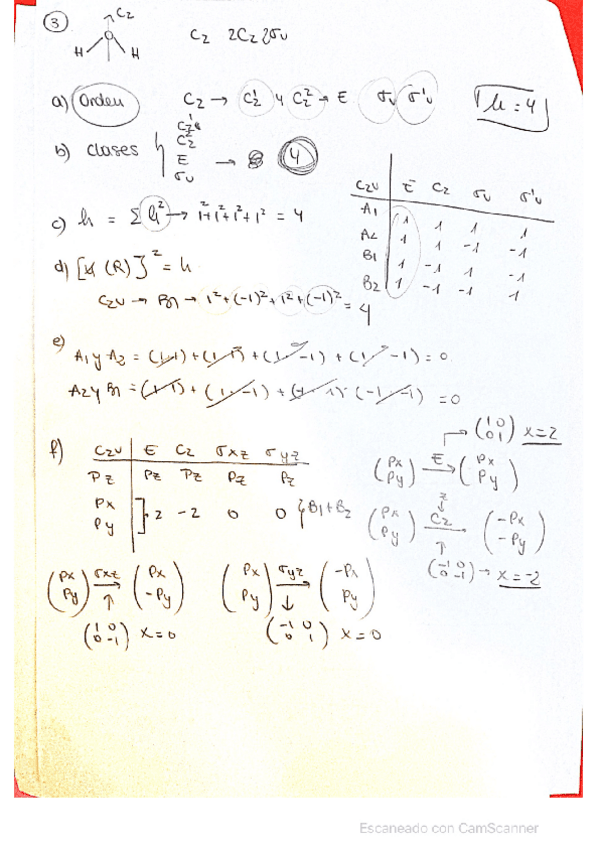 ③ C₂
O
H H
C₂ 2C₂ 2σv
a) Orden C₂ → C₂¹ y C₂² → E σv σ'v h = 4
b) clases C₂¹ C₂² E σv → 4
c) h = Σ li² → 1²+1²+1²+1² = 4
C₂v E C₂ σv σ'v
A₁ 1 1 1 1
A₂ 1 1 -1 -1
B₁ 1 -1 1 -1
B₂ 1 -1 -1 1
d) [χ (R)]² = h
C₂v → B₁ → 1²+(-1)²+1²+(-1)² = 4
e) A₁ y A₂ = (1·1)+(1·1)+(1·-1)+(1·-1)=0
A₂ y B₁ = (1·1)+(1·-1)+(-1·1)·(-1·-1) =0
f) C₂v E C₂ σxz σyz
Pz Pz Pz Pz Pz
Px Py } 2 -2 0 0 { B₁+B₂
(Px Py) E→ (Px Py)
→ (1 0 0 1) x=2
(Px Py) C₂→ (-Px -Py)
↑ (-1 0 0 -1) → x=-2
(Px Py) σxz→ (Px -Py)
↑ (1 0 0 -1) x=0
(Px Py) σyz→ (-Px Py)
↓ (-1 0 0 1) x=0
Escaneado con CamScanner